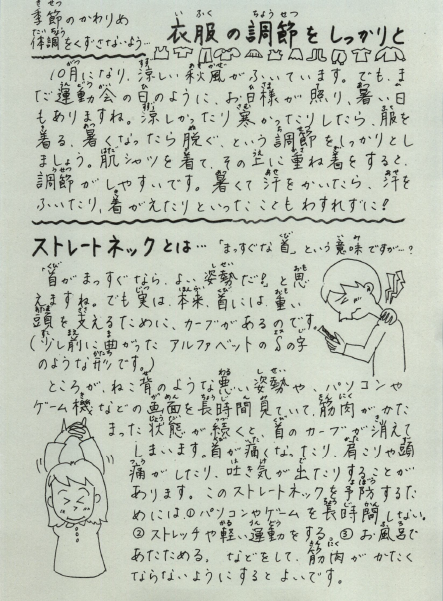 季節のかわりめ
体調をくずさないよう…
衣服の調節をしっかりと
10月になり、涼しい秋風がふいています。でも、ま
だ運動会の日のように、お日様が照り、暑い日
もありますね。涼しかったり寒かったりしたら、服を
着る、暑くなったら脱ぐ、という調節をしっかりとし
ましょう。肌シャツを着て、その上に重ね着をすると、
調節がしやすいです。暑くて汗をかいたら、汗を
ふいたり、着がえたりといったこともわすれずに!
ストレートネックとは…「まっすぐな首」という意味ですが…?
「首がまっすぐなら、よい姿勢だ!」と思
えますね。でも実は、本来、首には、重い
頭を支えるために、カーブがあるのです。
(少し前に曲がったアルファベットのSの字
のような形です。)
ところが、ねこ背のような悪い姿勢や、パソコンや
ゲーム機などの画面を長時間見ていて、筋肉がかた
まった状態が続くと、首のカーブが消えて
しまいます。首が痛くなったり、肩こりや頭
痛がしたり、吐き気が出たりすることが
あります。このストレートネックを予防するた
めには①パソコンやゲームを長時間しない。
②ストレッチや軽い運動をする。③お風呂で
あたためる。などをして、筋肉がかたく
ならないようにするとよいです。